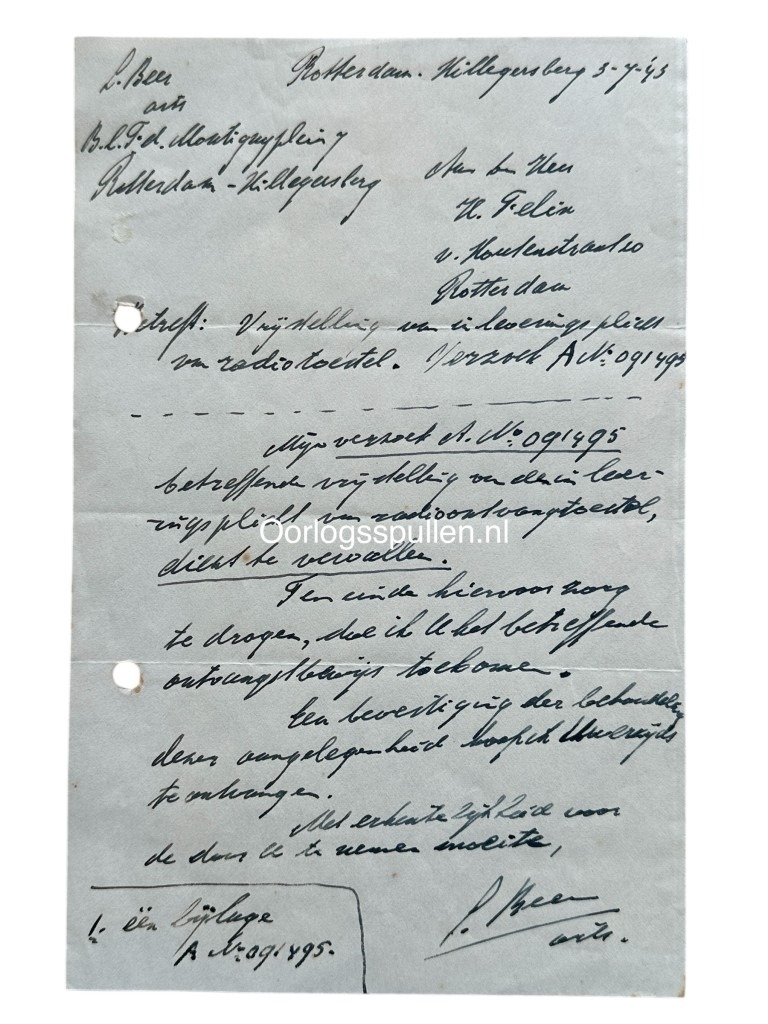 L. Beer
Rotterdam. Hillegersberg 3-7-'43
arts
B.L.F.d. Montignyplein 7
Rotterdam - Hillegersberg
Aan den Heer
H. Felix
v. Houtenstraat 10
Rotterdam
Betreft: Vrijstelling van inleveringsplicht
van radiotoestel. Verzoek A No: 091495
Mijn verzoek A. No: 091495
betreffende vrijstelling van den inleve-
ringsplicht van radioontvangtoestel,
Oorlogsspullen.nl
dient te vervallen.
Ten einde hiervoor zorg
te dragen, doe ik U het betreffende
ontvangstbewijs toekomen.
Een bevestiging der behandeling
dezer aangelegenheid hoop ik Uwerzijds
te ontvangen.
Met erkentelijkheid voor
de door U te nemen moeite,
L. Beer
arts.
1. één bijlage
A No: 091495.